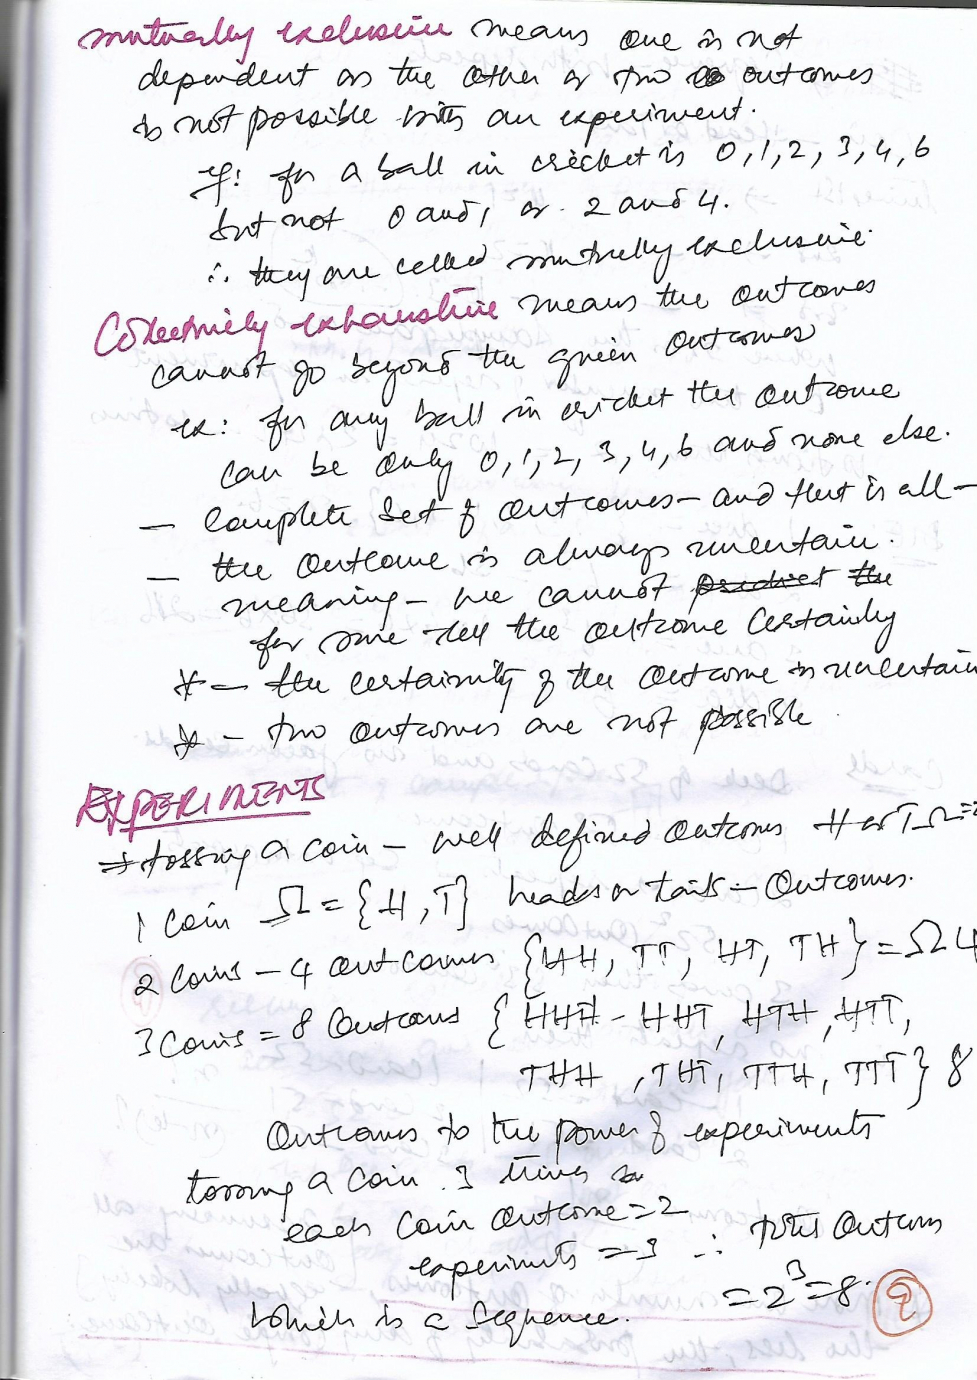 mutually exclusive means one is not
dependent on the other or two outcomes
is not possible with an experiment.
eg: for a ball in cricket is 0,1,2,3,4,6
but not 0 and 1 or 2 and 4.
∴ they are called mutually exclusive
Collectively exhaustive means the outcomes
cannot go beyond the given outcomes
ex: for any ball in cricket the outcome
can be only 0,1,2,3,4,6 and none else.
— Complete set of outcomes – and that is all –
— the outcome is always uncertain.
meaning – we cannot predict the
for sure tell the outcome certainly
* – the certainity of the outcome is uncertain
* – two outcomes are not possible
EXPERIMENTS
→ tossing a coin – well defined outcomes H or T Ω =
1 coin Ω = {H, T} heads or tails – Outcomes.
2 coins – 4 outcomes {HH, TT, HT, TH} = Ω 4
3 coins = 8 Outcomes {HHH – HHT, HTH, HTT,
THH, THT, TTH, TTT} 8
Outcomes to the power of experiments
tossing a coin 3 times
each coin outcome = 2
experiments = 3 ∴ total outcomes
= 2³ = 8.
which is a sequence.
2